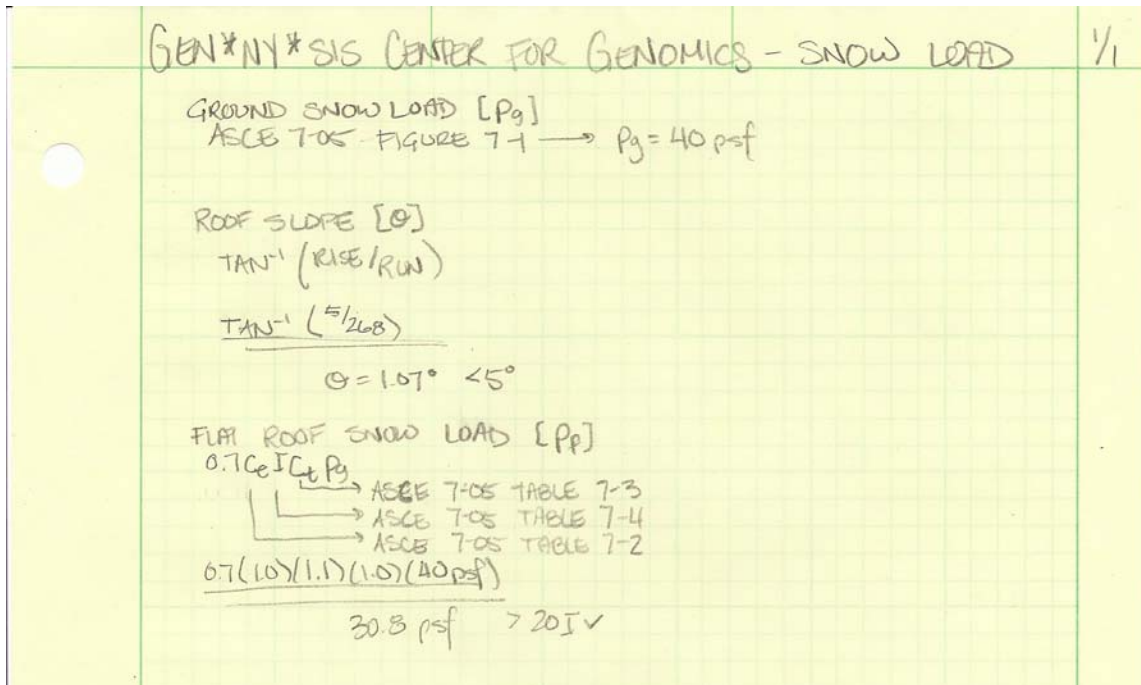 GEN*NY*SIS CENTER FOR GENOMICS - SNOW LOAD 1/1
GROUND SNOW LOAD [Pg]
ASCE 7-05 FIGURE 7-1 → Pg = 40 psf
ROOF SLOPE [θ]
TAN⁻¹ (RISE/RUN)
TAN⁻¹ (5/268)
θ = 1.07° <5°
FLAT ROOF SNOW LOAD [Pf]
0.7CeICtPg
→ ASCE 7-05 TABLE 7-3
→ ASCE 7-05 TABLE 7-4
→ ASCE 7-05 TABLE 7-2
0.7(1.0)(1.1)(1.0)(40 psf)
30.8 psf > 20I ✓